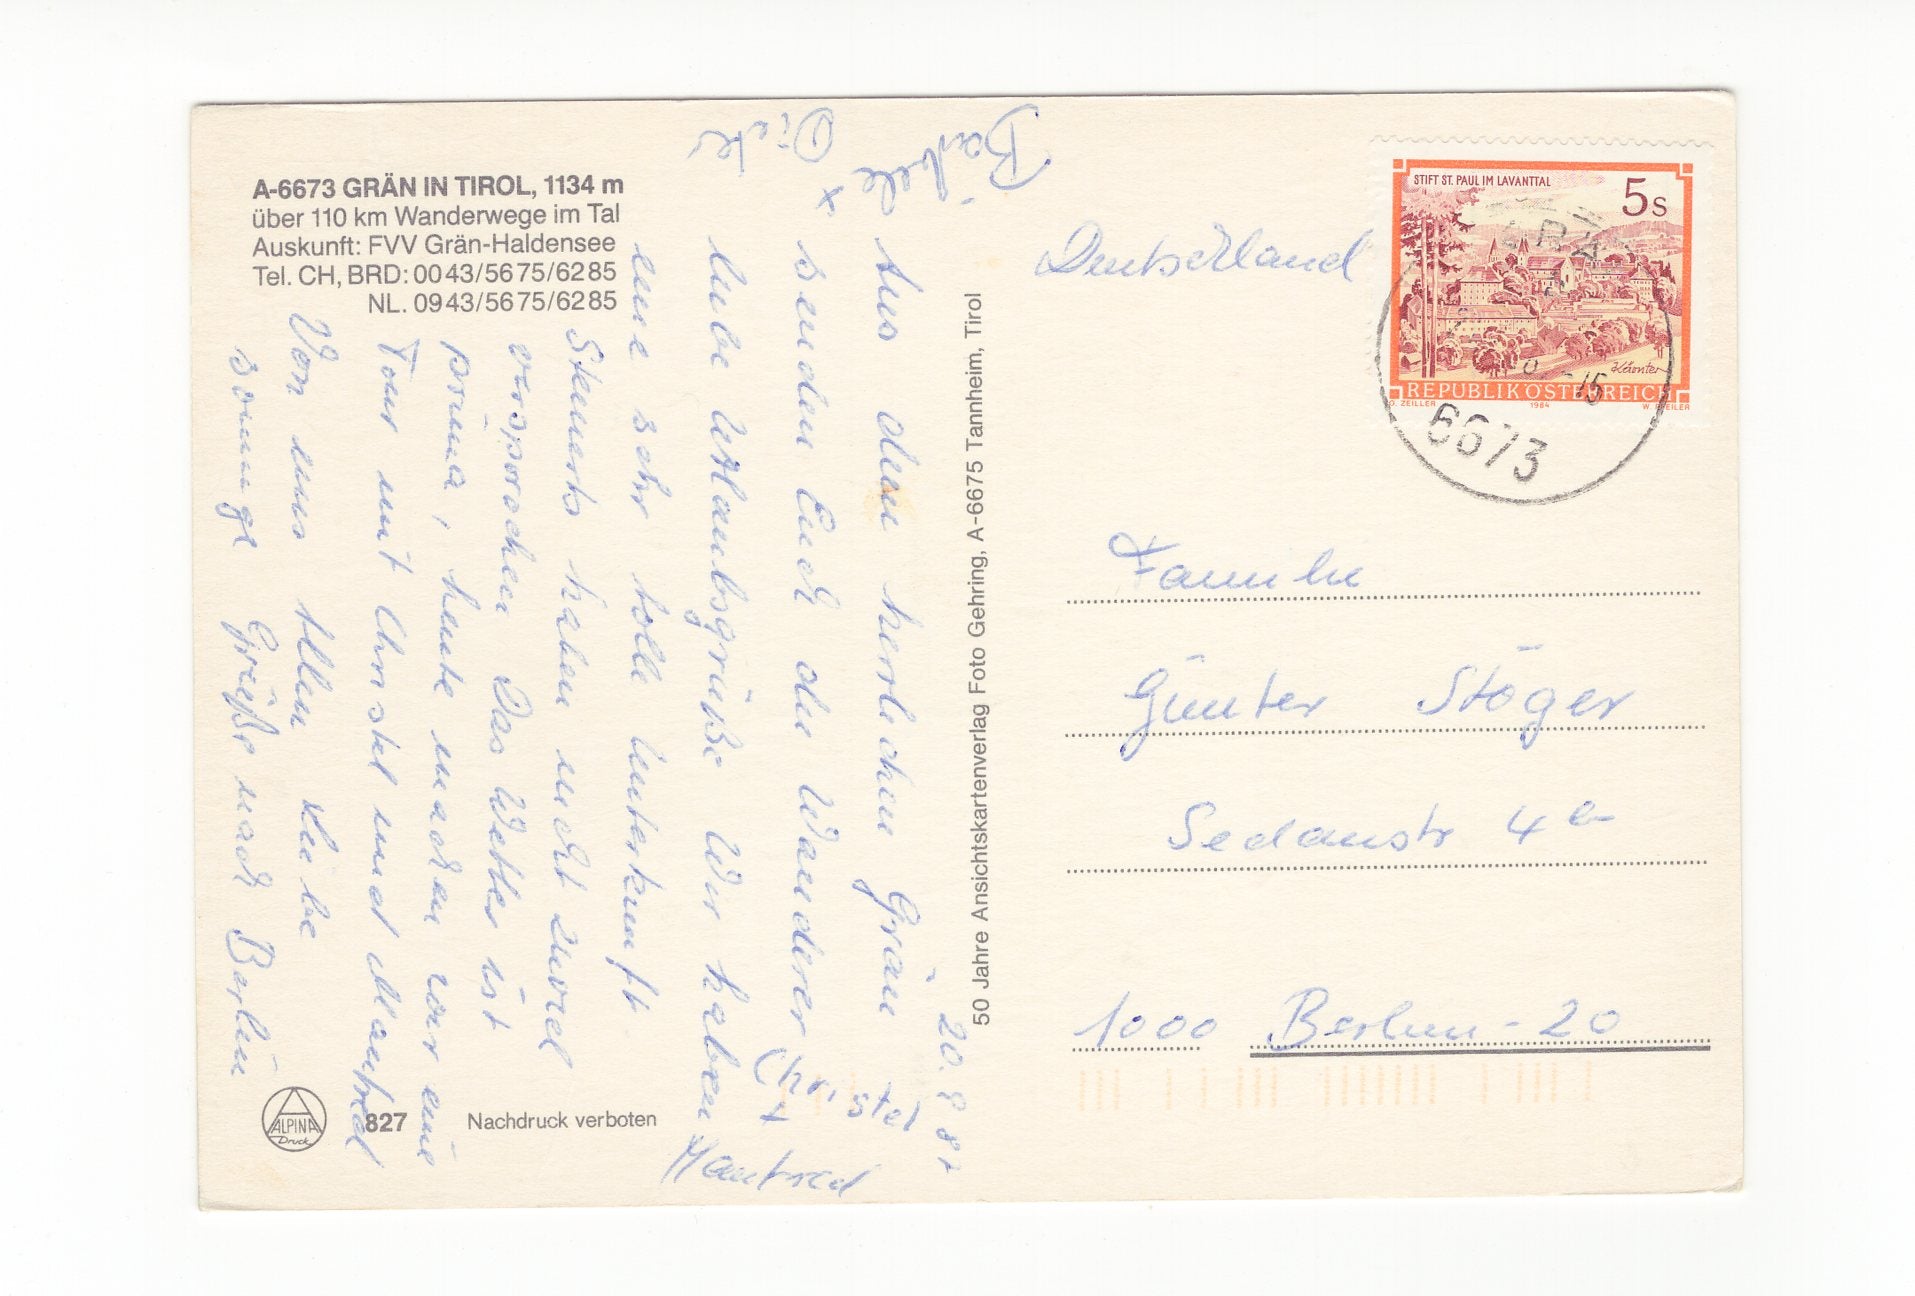 A-6673 GRÄN IN TIROL, 1134 m
über 110 km Wanderwege im Tal
Auskunft: FVV Grän-Haldensee
Tel. CH, BRD: 0043/5675/6285
NL. 0943/5675/6285
20.8.87
Aus dem herlichen Grän
senden Euch die Wanderer
liebe Urlaubsgrüße Wir haben
eine sehr tolle Unterkunft.
Steuerts haben nicht zuviel
versprochen Das Wetter ist
prima, heute machen wir eine
Tour mit Christel und Manfred
Von uns Allen Liebe
sonnige Grüße nach Berlin
Bärbele +
Christel +
Manfred
ALPINA
Druck
827
Nachdruck verboten
50 Jahre Ansichtskartenverlag Foto Gehring, A-6675 Tannheim, Tirol
STIFT ST. PAUL IM LAVANTTAL
5s
Kärnten
REPUBLIK ÖSTERREICH
G. ZEILLER 1984 W. PFEILER
6673
Deutschland
Familie
Günter Stöger
Sedanstr 4b
1000 Berlin-20